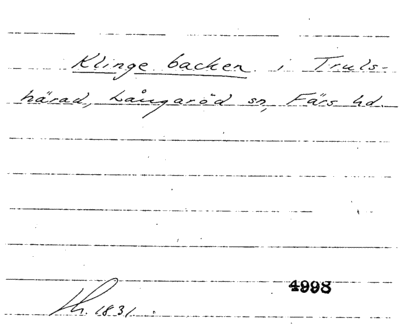 Klinge backen i Truls-
härad, Långaröd sn, Färs hd
4998
1831.